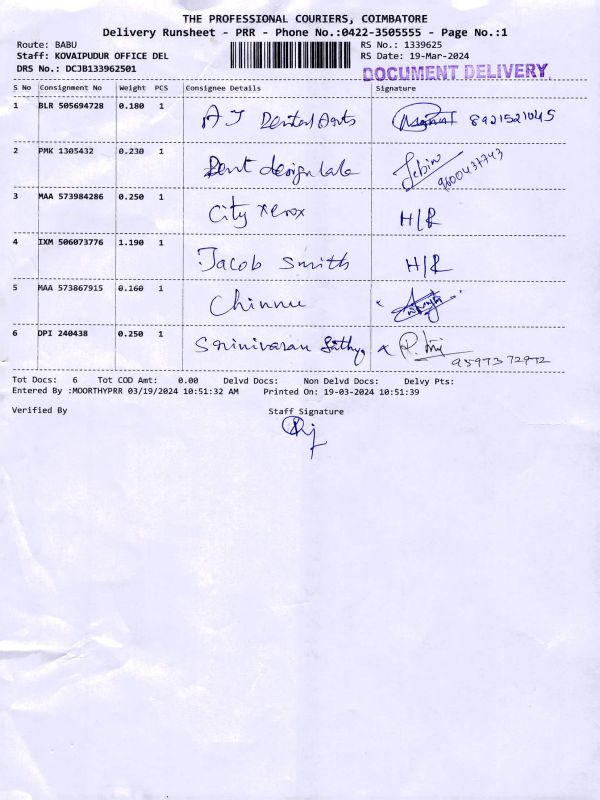 THE PROFESSIONAL COURIERS, COIMBATORE
Delivery Runsheet - PRR - Phone No.:0422-3505555 - Page No.:1
Route: BABU RS No.: 1339625
Staff: KOVAIPUDUR OFFICE DEL RS Date: 19-Mar-2024
DRS No.: DCJB133962501 DOCUMENT DELIVERY
S No Consignment No Weight PCS Consignee Details Signature
1 BLR 505694728 0.180 1 A J Dental Arts 8921521045
2 PMK 1305432 0.230 1 Dent design lab Jebin 9600437743
3 MAA 573984286 0.250 1 City Xerox H/R
4 IXM 506073776 1.190 1 Jacob Smith H/R
5 MAA 573867915 0.160 1 Chinnu
6 DPI 240438 0.250 1 Srinivasan Sathya 9597372972
Tot Docs: 6 Tot COD Amt: 0.00 Delvd Docs: Non Delvd Docs: Delvy Pts:
Entered By :MOORTHYPRR 03/19/2024 10:51:32 AM Printed On: 19-03-2024 10:51:39
Verified By Staff Signature